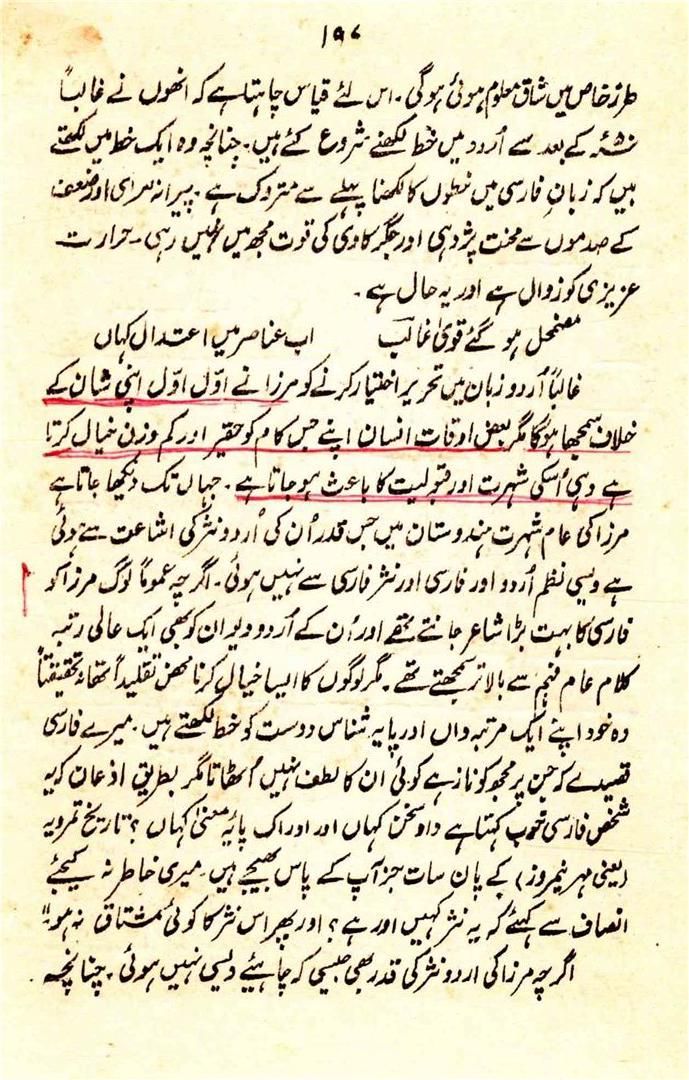 ۱۹۸
طرز خاص میں شاق معلوم ہوئی ہوگی۔ اس لئے قیاس چاہتا ہے کہ انھوں نے غالباً
کے بعد سے اُردو میں خط لکھنے شروع کئے ہیں۔ چنانچہ وہ ایک خط میں لکھتے
ہیں کہ زبانِ فارسی میں خطوں کا لکھنا پہلے سے متروک ہے۔ پیرانہ سری اور ضعف
کے صدموں سے محنت پژدہی اور جگر کاوی کی قوت مجھ میں نہیں رہی۔ حرارت
عزیزی کو زوال ہے اور یہ حال ہے۔
مضمحل ہو گئے قویٰ غالب اب عناصر میں اعتدال کہاں
غالباً اُردو زبان میں تحریر اختیار کرنے کو مرزا نے اوّل اوّل اپنی شان کے
خلاف سمجھا ہوگا مگر بعض اوقات انسان اپنے جس کام کو حقیر اور کم وزن خیال کرتا
ہے وہی اُسکی شہرت اور قبولیت کا باعث ہو جاتا ہے۔ جہاں تک دیکھا جاتا ہے
مرزا کی عام شہرت ہندوستان میں جس قدر اُن کی اُردو نثر کی اشاعت سے ہوئی
ہے ویسی نظم اُردو اور فارسی اور نثر فارسی سے نہیں ہوئی۔ اگرچہ عموماً لوگ مرزا کو
فارسی کا بہت بڑا شاعر جانتے تھے اور اُن کے اُردو دیوان کو بھی ایک عالی رتبہ
کلام عام فہم سے بالاتر سمجھتے تھے۔ مگر لوگوں کا ایسا خیال کرنا محض تقلیداً تھا نہ تحقیقتاً
وہ خود اپنے ایک مرتبہ داں اور پایہ شناس دوست کو خط لکھتے ہیں۔ میرے فارسی
قصیدے کہ جن پر مجھ کو ناز ہے کوئی ان کا لطف نہیں اُٹھاتا مگر بطریق اذعان کہ یہ
شخص فارسی خوب کہتا ہے داد سخن کہاں اور ادراک پایۂ معنیٰ کہاں؟ تاریخ تمریہ
(یعنی مہر نیمروز) کے پان سات جز آپ کے پاس بھیجے ہیں۔ میری خاطر نہ کیجئے
انصاف سے کہئے کہ یہ نثر کہیں اور ہے؟ اور پھر اس نثر کا کوئی مشتاق نہ ہو"
اگرچہ مرزا کی اردو نثر کی قدر بھی جیسی کہ چاہیئے ویسی نہیں ہوئی۔ چنانچہ